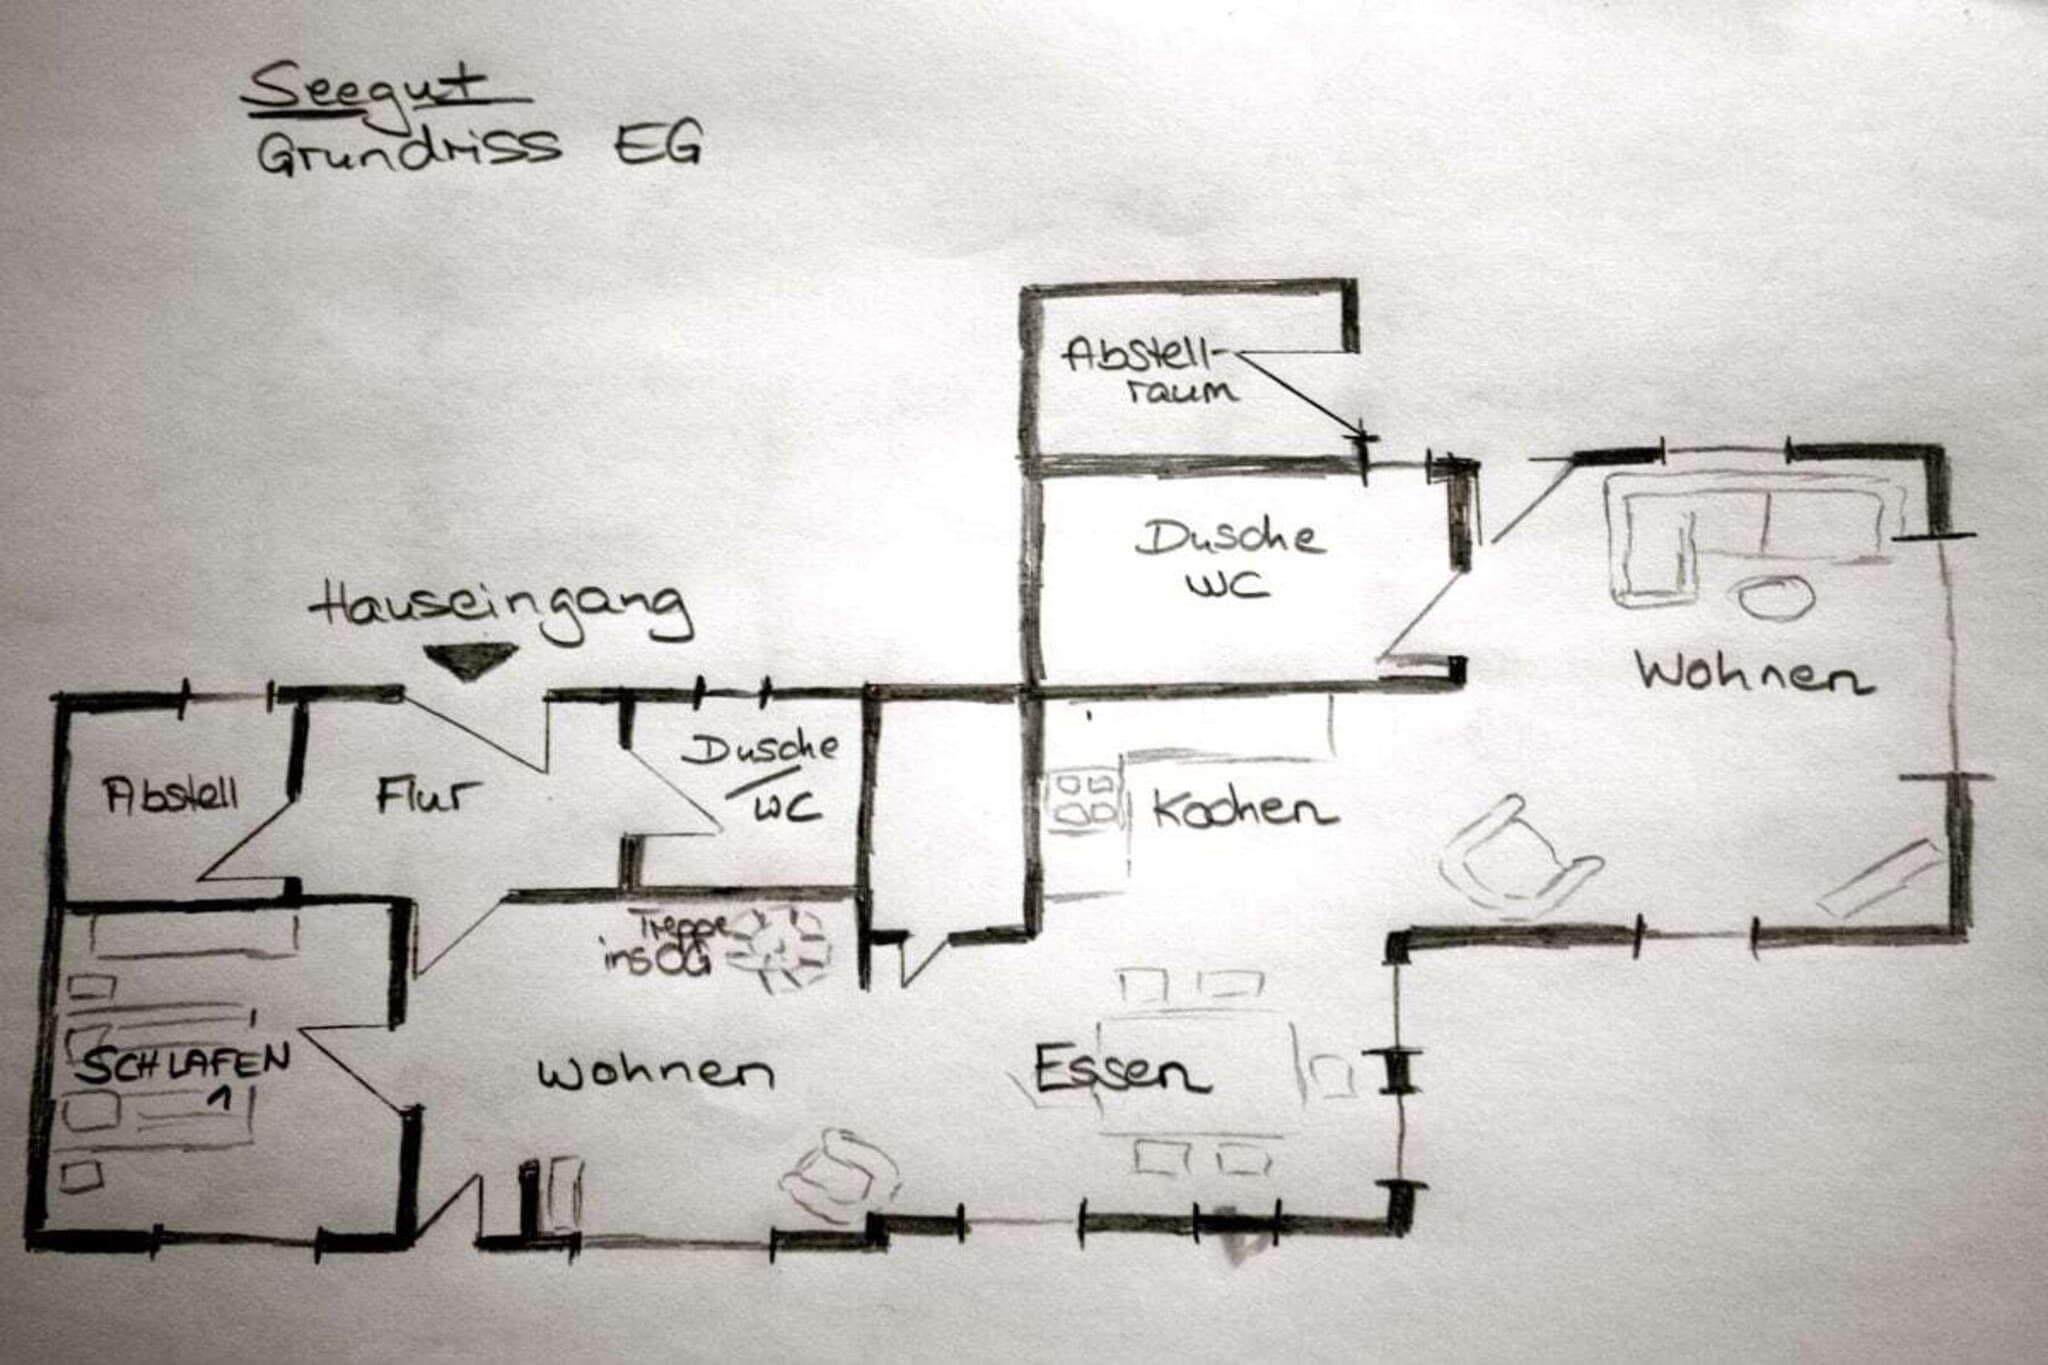 Seegut
Grundriss EG
Abstell-
raum
Dusche
WC
Hauseingang
Wohnen
Abstell
Flur
Dusche
/WC
Kochen
Treppe
ins OG
SCHLAFEN
1
Wohnen
Essen